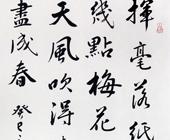 揮毫落紙
幾點梅花
天風吹得
盡成春 癸巳